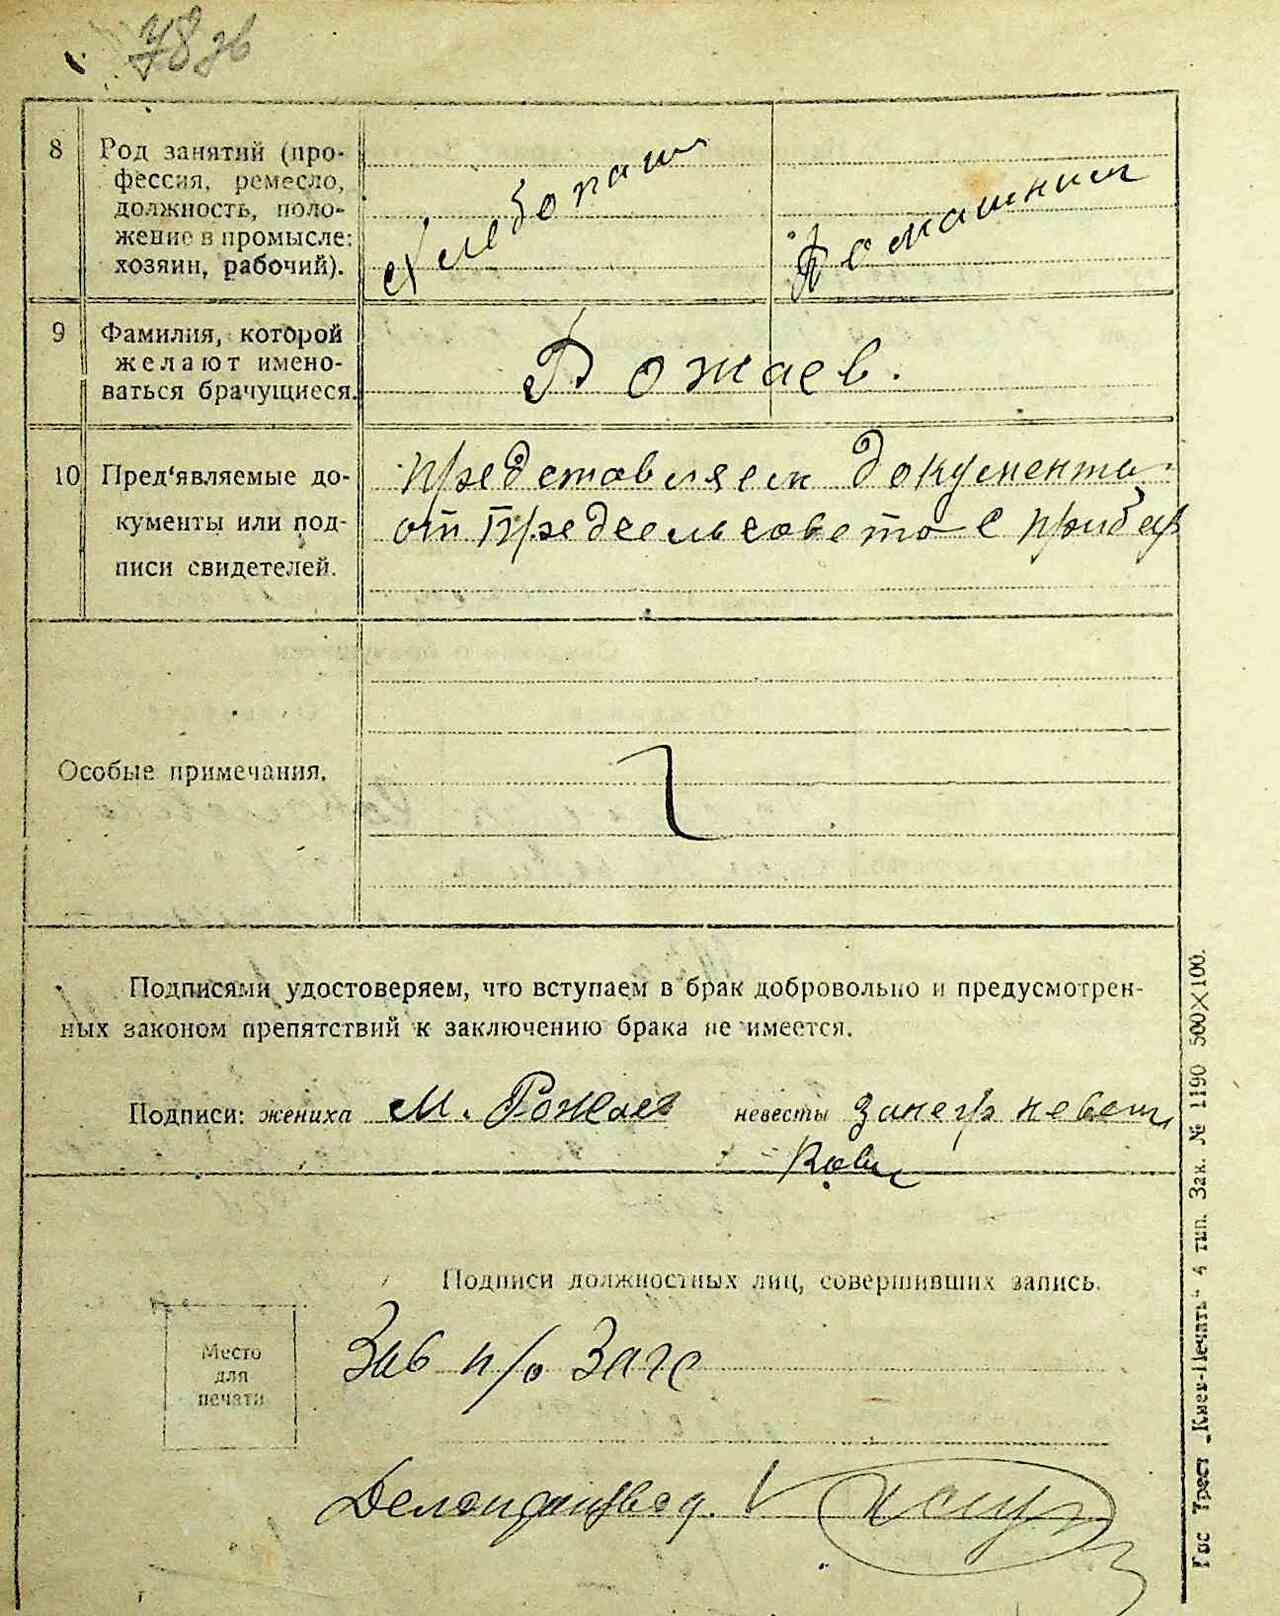 78 зв
8 Род занятий (про-
фессия, ремесло,
должность, поло-
жение в промысле:
хозяин, рабочий).
Хлебопаш
Домашним
9 Фамилия, которой
желают имено-
ваться брачущиеся.
Рожаев.
10 Пред'являемые до-
кументы или под-
писи свидетелей.
представляем документы
от Предсельсовета с прибер
Особые примечания.
Подписями удостоверяем, что вступаем в брак добровольно и предусмотрен-
ных законом препятствий к заключению брака не имеется.
Подписи: жениха М. Рожаев невесты занегр невест
Подписи должностных лиц, совершивших запись.
Место
для
печати
Зав п/о Загс
Делопроизвод.
Гос Трест „Киев-Печать" 4 тип. Зак. № 1190 500×100.